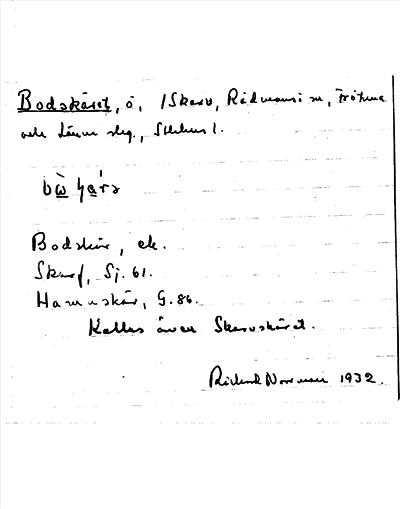 Bodskäret, ö, /Skarv, Rådmansö sn, Frötuna
och Länna slg., Sthlms l.
Bodskär, ek.
Skarf, Sj. 61.
Hamnskär, G. 86.
Kallas även Skarvskäret.
Rickard Norrman 1932.